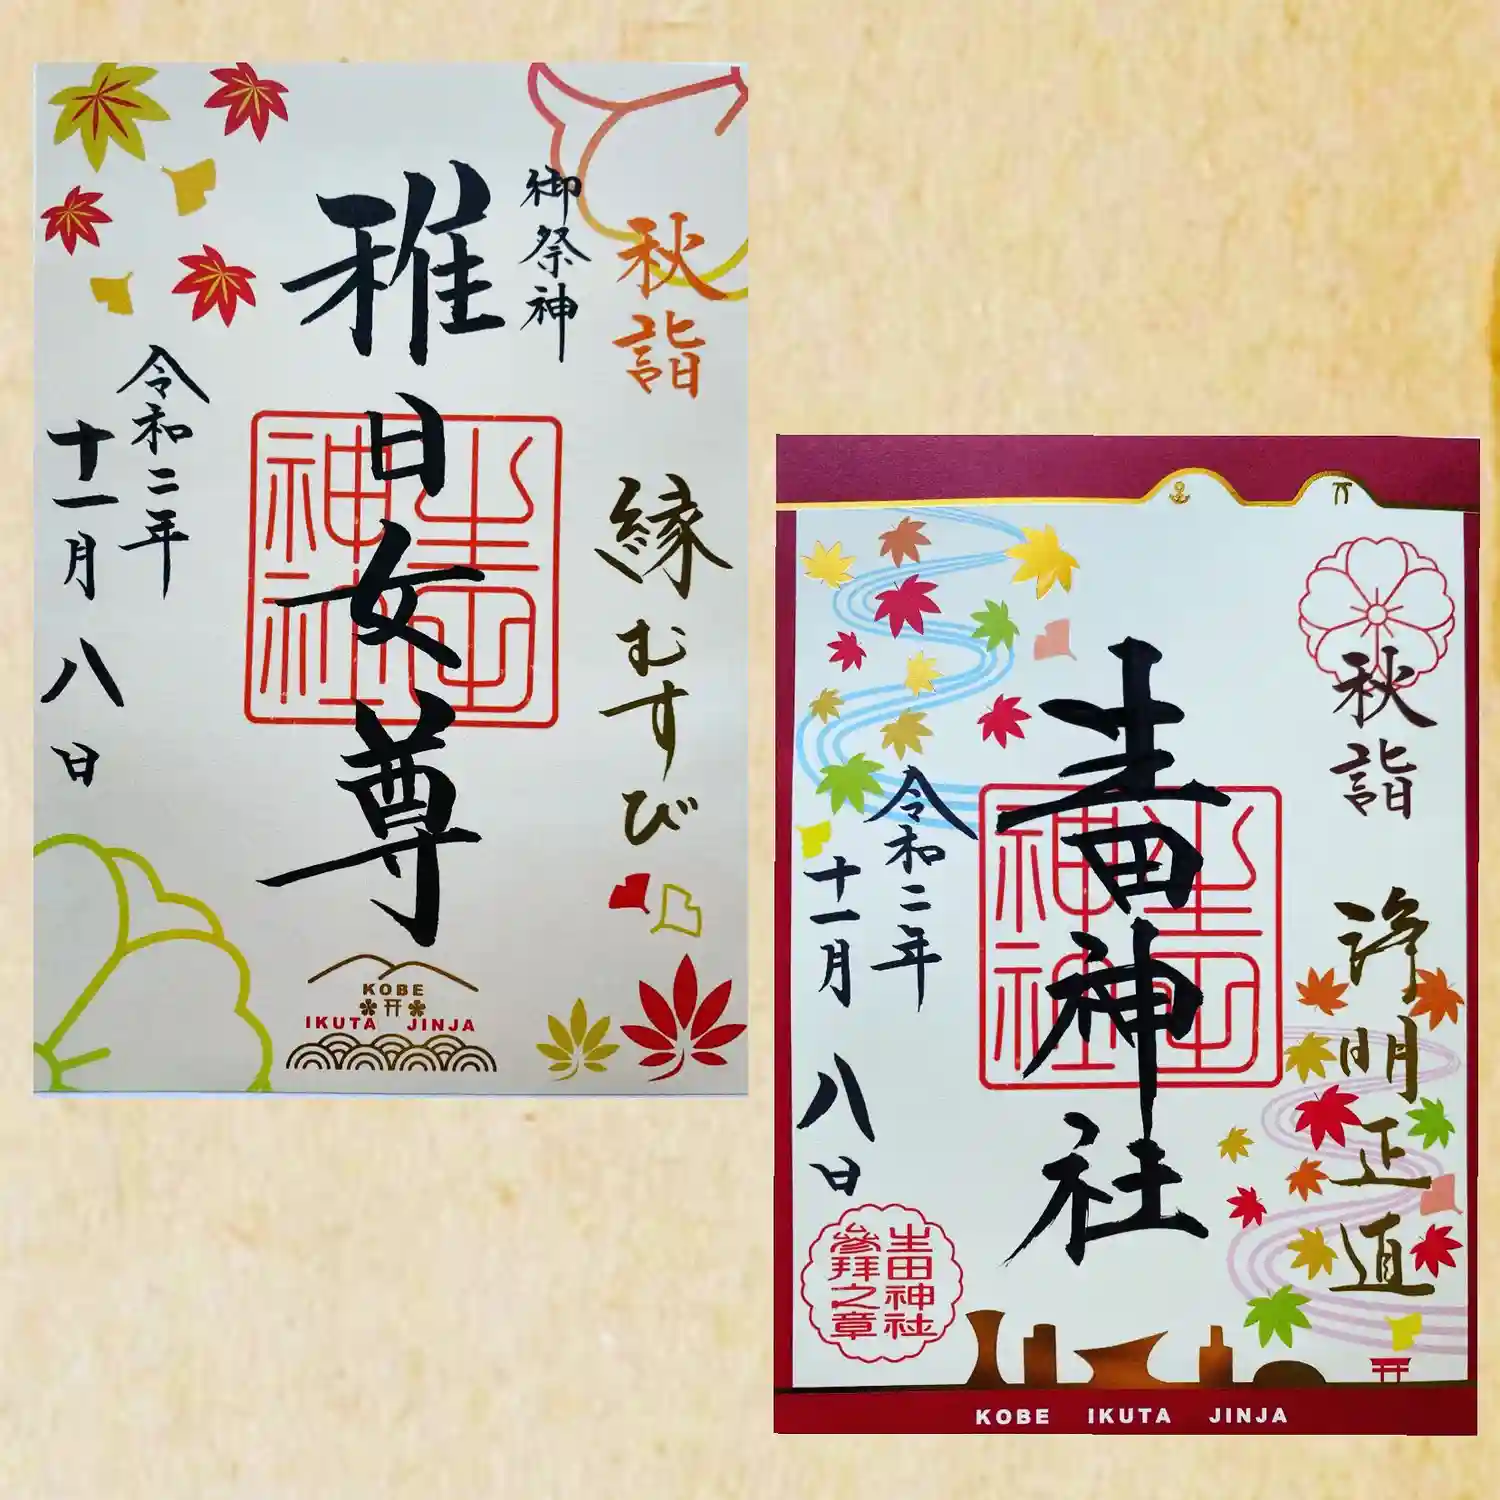 秋詣
縁むすび
御祭神
稚日女尊
生田神社
令和二年
十一月 八日
KOBE
IKUTA JINJA
秋詣
浄明正道
生田神社
生田神社
令和二年
十一月 八日
生田神社
參拜之章
KOBE IKUTA JINJA